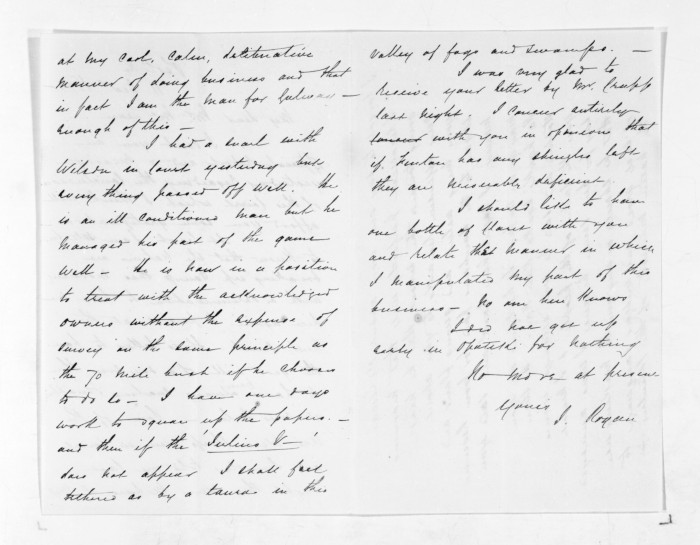 at my cool, calm, deliberative
manner of doing business and that
in fact I am the man for
Enough of this —
I had a snarl with
Wilson in Court yesterday but
every thing passed off well. He
is an ill conditioned man but he
managed his part of the game
well — He is now in a position
to treat with the acknowledged
owners without the expense of
survey on the same principle as
the 70 mile bush if he chooses
to do so — I have one days
work to square up the papers. —
and then if the 'Julius V'
does not appear I shall feel
tethered as by a in this
valley of fogs and swamps. —
I was very glad to
receive your letter by Mr.
last night. I concur entirely
with you in opinion that
if Fenton has any shingles left
they are miserably deficient.
I should like to have
one bottle of Claret with you
and relate the manner in which
I manipulated my part of this
business — No one here knows
I did not get up
early in for nothing
No more at present
Yours
J. Rogan